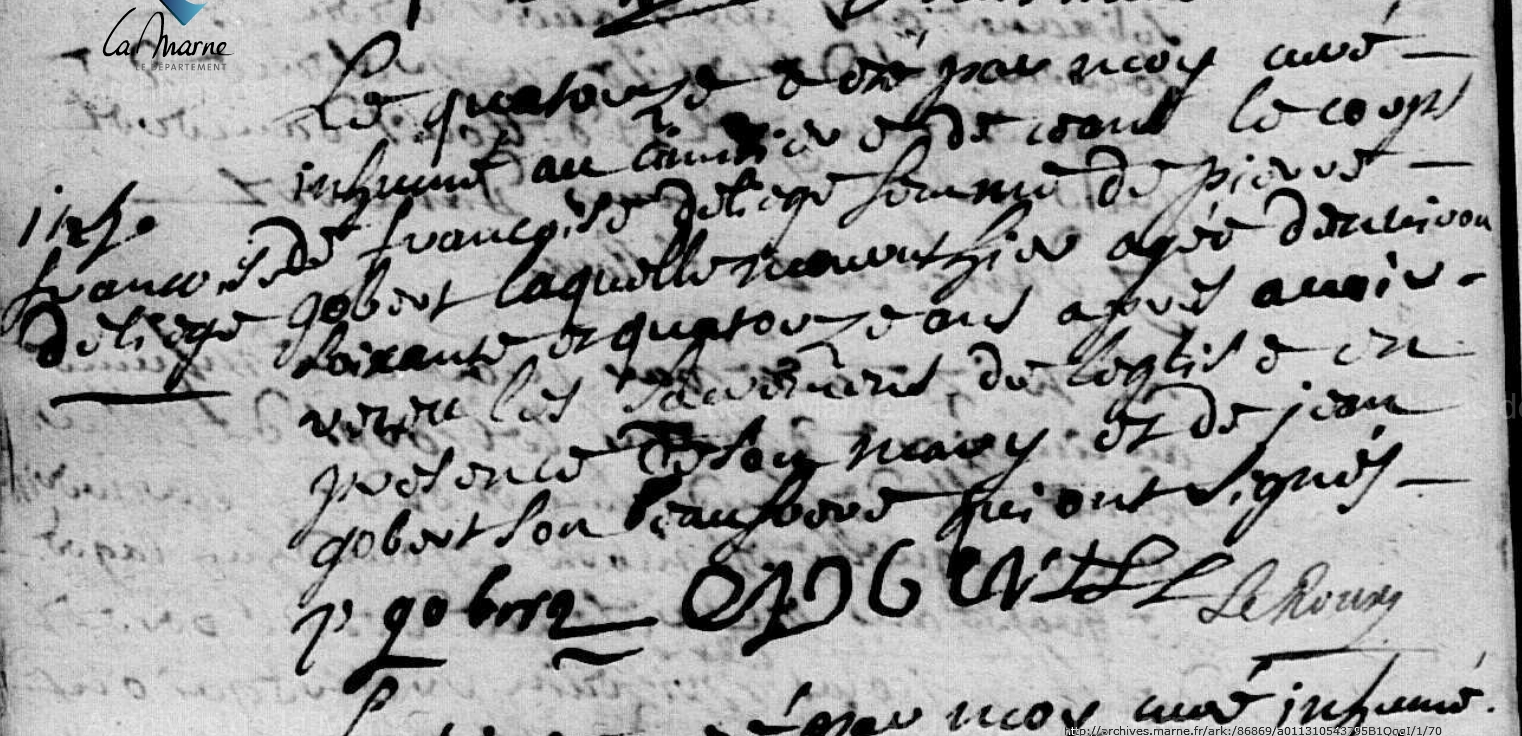 La Marne
LE DEPARTEMENT
Le quatorze a été par moy curé
inhumé au cimetiere de ceant le corps
inh.
francoise
deliege
de francoise deliege femme de pierre
gobert laquelle mourut hier agée denuiron
soixante et quatorze ans apres auoir
receu les sacremens de leglise en
presence de son mary et de jean
gobert son beaufrere qui ont signés
p gobert
Le Roux
par moy curé inhumé
http://archives.marne.fr/ark:/86869/a011310543795B1OogI/1/70